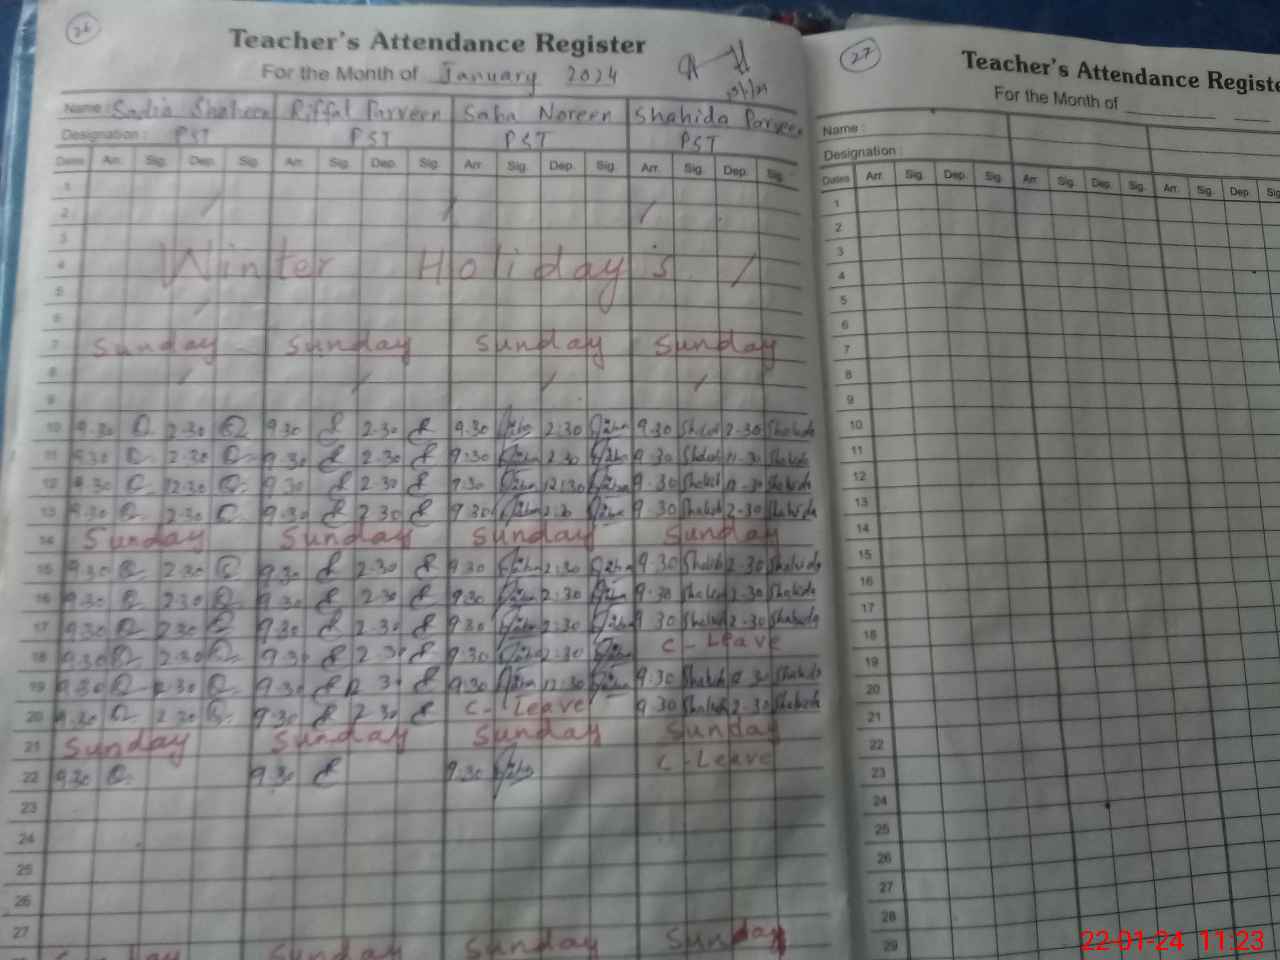 26
Teacher's Attendance Register
For the Month of January 2024
Name: Sadia Shaheen Riffat Parveen Saba Noreen Shahida Parveen
Designation: PST PST PST PST
Dates Arr. Sig. Dep. Sig. Arr. Sig. Dep. Sig. Arr. Sig. Dep. Sig. Arr. Sig. Dep. Sig.
1
2
3
4 Winter Holiday's
5
6
7 Sunday Sunday Sunday Sunday
8
9
10 9.30 2.30 9.30 2.30 9.30 2:30 9.30 2-30 Shahida
11 9.30 2.30 9.30 2.30 9:30 2.30 9.30 Shahida
12 9.30 12:30 9.30 2.30 9.30 12:30 9.30 Shahida
13 9.30 2.30 9.30 2.30 9.30 9.30 2-30 Shahida
14 Sunday Sunday Sunday Sunday
15 9.30 2.30 9.30 2.30 9.30 2:30 9.30 2-30 Shahida
16 9.30 2.30 9.30 2.30 9.30 2:30 9.30 2.30 Shahida
17 9.30 2.30 9.30 2.30 9.30 2:30 9.30 2-30 Shahida
18 9.30 2.30 9.30 2.30 9.30 2:30 C-Leave
19 9.30 9.30 9.30 12:30 9.30 Shahida
20 9.30 2.30 9.30 2.30 C-Leave 9.30 2-30 Shahida
21 Sunday Sunday Sunday Sunday
22 9.30 9.30 9.30 C-Leave
23
24
25
26
27
Sunday Sunday Sunday
27
Teacher's Attendance Registe
For the Month of
Name:
Designation:
Dates Arr. Sig. Dep. Sig. Arr. Sig. Dep. Sig. Arr. Sig. Dep.
1
2
3
4
5
6
7
8
9
10
11
12
13
14
15
16
17
18
19
20
21
22
23
24
25
26
27
28
29
22-01-24 11:23